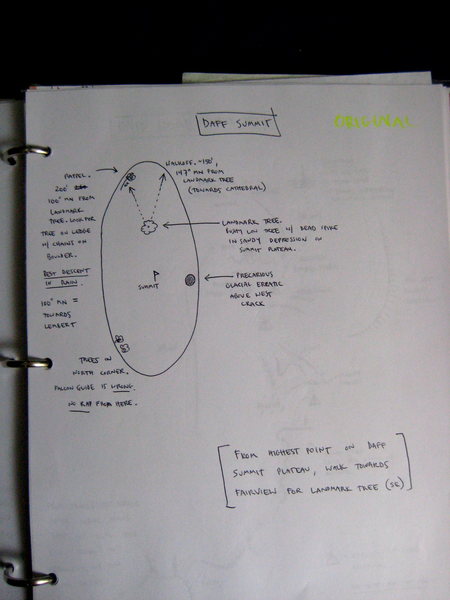 DAFF SUMMIT
ORIGINAL
RAPPEL.
200'
100° MN FROM
LANDMARK
TREE. LOOK FOR
TREE ON LEDGE
W/ CHAINS ON
BOULDER.
BEST DESCENT
IN RAIN.
100° MN =
TOWARDS
LEMBERT
WALKOFF. ~150',
147° MN FROM
LANDMARK TREE
(TOWARDS CATHEDRAL)
LANDMARK TREE.
BUSHY LOW TREE W/ DEAD SPIKE
IN SANDY DEPRESSION ON
SUMMIT PLATEAU.
SUMMIT
PRECARIOUS
GLACIAL ERRATIC
ABOVE WEST
CRACK
TREES IN
NORTH CORNER.
FALCON GUIDE IS WRONG.
NO RAP FROM HERE.
[FROM HIGHEST POINT ON DAFF
SUMMIT PLATEAU, WALK TOWARDS
FAIRVIEW FOR LANDMARK TREE (SE)]